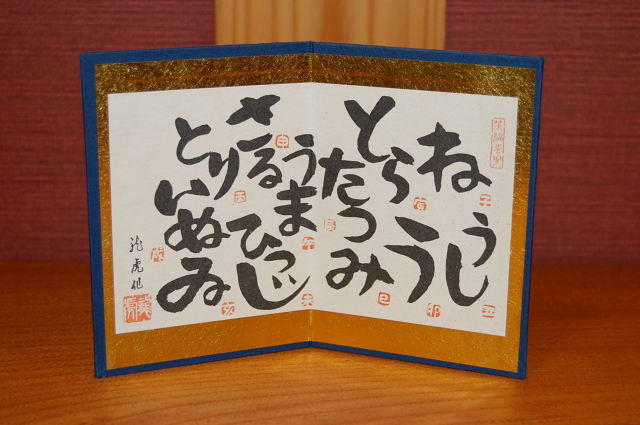 ね
子
うし
丑
とら
寅
う
卯
たつ
辰
み
巳
うま
午
ひつじ
未
さる
申
とり
酉
いぬ
戌
ゐ
亥